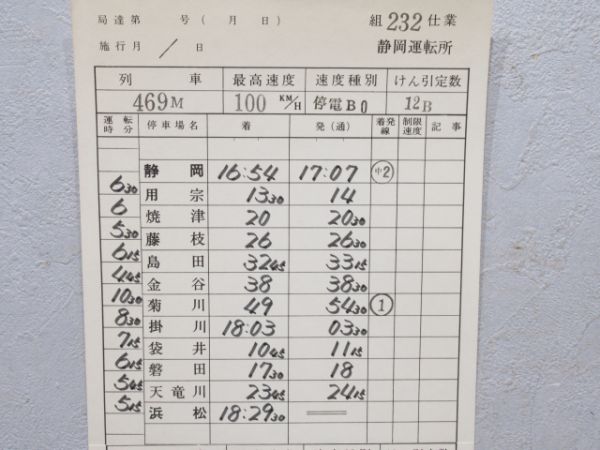 局達第 号( 月 日) 組 232 仕業
施行月 / 日 静岡運転所
列 車 最高速度 速度種別 けん引定数
469M 100 KM/H 停電B0 12B
運転時分 停車場名 着 発(通) 着発線 制限速度 記事
静岡 16:54 17:07 中2
6 30 用宗 13 30 14
6 焼津 20 20 30
5 30 藤枝 26 26 30
6 15 島田 32 45 33 15
4 45 金谷 38 38 30
10 30 菊川 49 54 30 1
8 30 掛川 18:03 03 30
7 15 袋井 10 45 11 15
6 15 磐田 17 30 18
5 45 天竜川 23 45 24 15
5 15 浜松 18:29 30